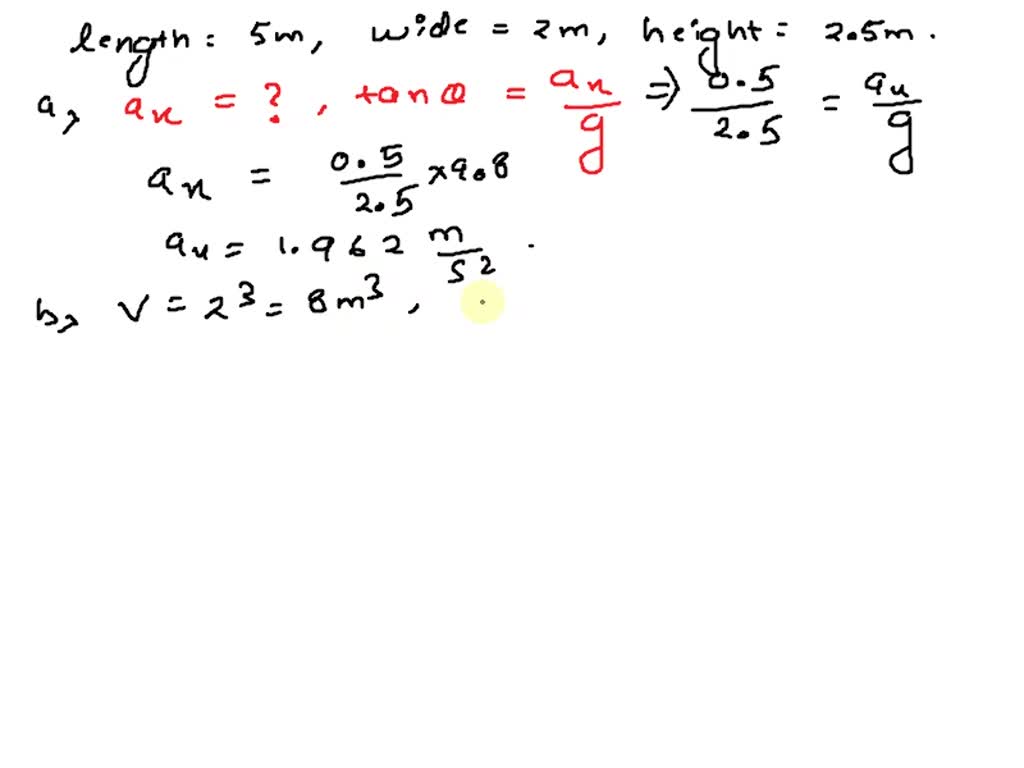 length: 5m, wide = 2m, height = 2.5m.
a, ax = ?, tanθ = ax/g ⇒ 0.5/2.5 = ax/g
ax = 0.5/2.5 × 9.8
ax = 1.962 m/s²
b, V = 2³ = 8m³,